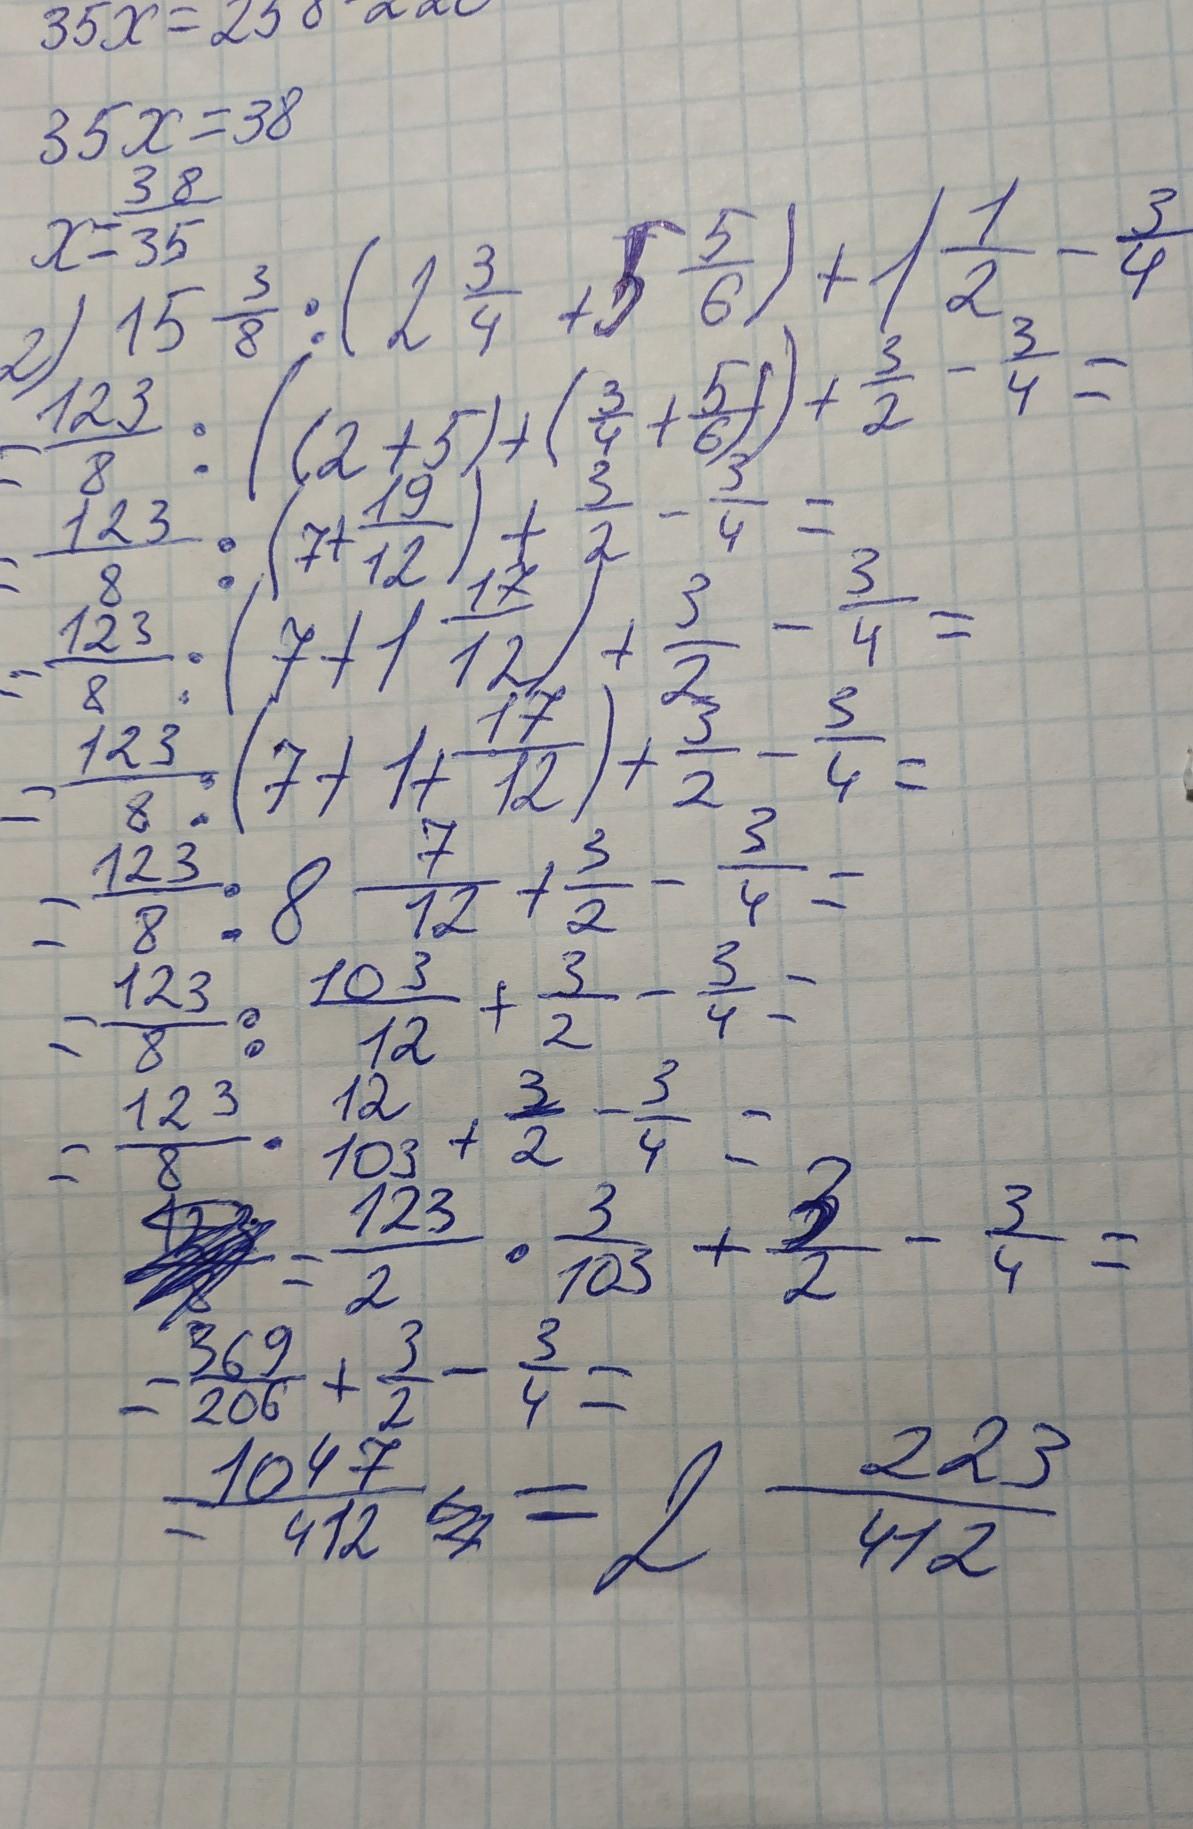 35x=258-220
35x=38
x=38/35
2) 15 3/8 : (2 3/4 + 5 5/6) + 1 1/2 - 3/4
= 123/8 : ((2+5)+(3/4+5/6)) + 3/2 - 3/4 =
= 123/8 : (7+19/12) + 3/2 - 3/4 =
= 123/8 : (7+1 17/12) + 3/2 - 3/4 =
= 123/8 : (7+1+17/12) + 3/2 - 3/4 =
= 123/8 : 8 7/12 + 3/2 - 3/4 =
= 123/8 : 103/12 + 3/2 - 3/4 =
= 123/8 · 12/103 + 3/2 - 3/4 =
= 123/2 · 3/103 + 3/2 - 3/4 =
= 369/206 + 3/2 - 3/4 =
= 1047/412 = 2 223/412